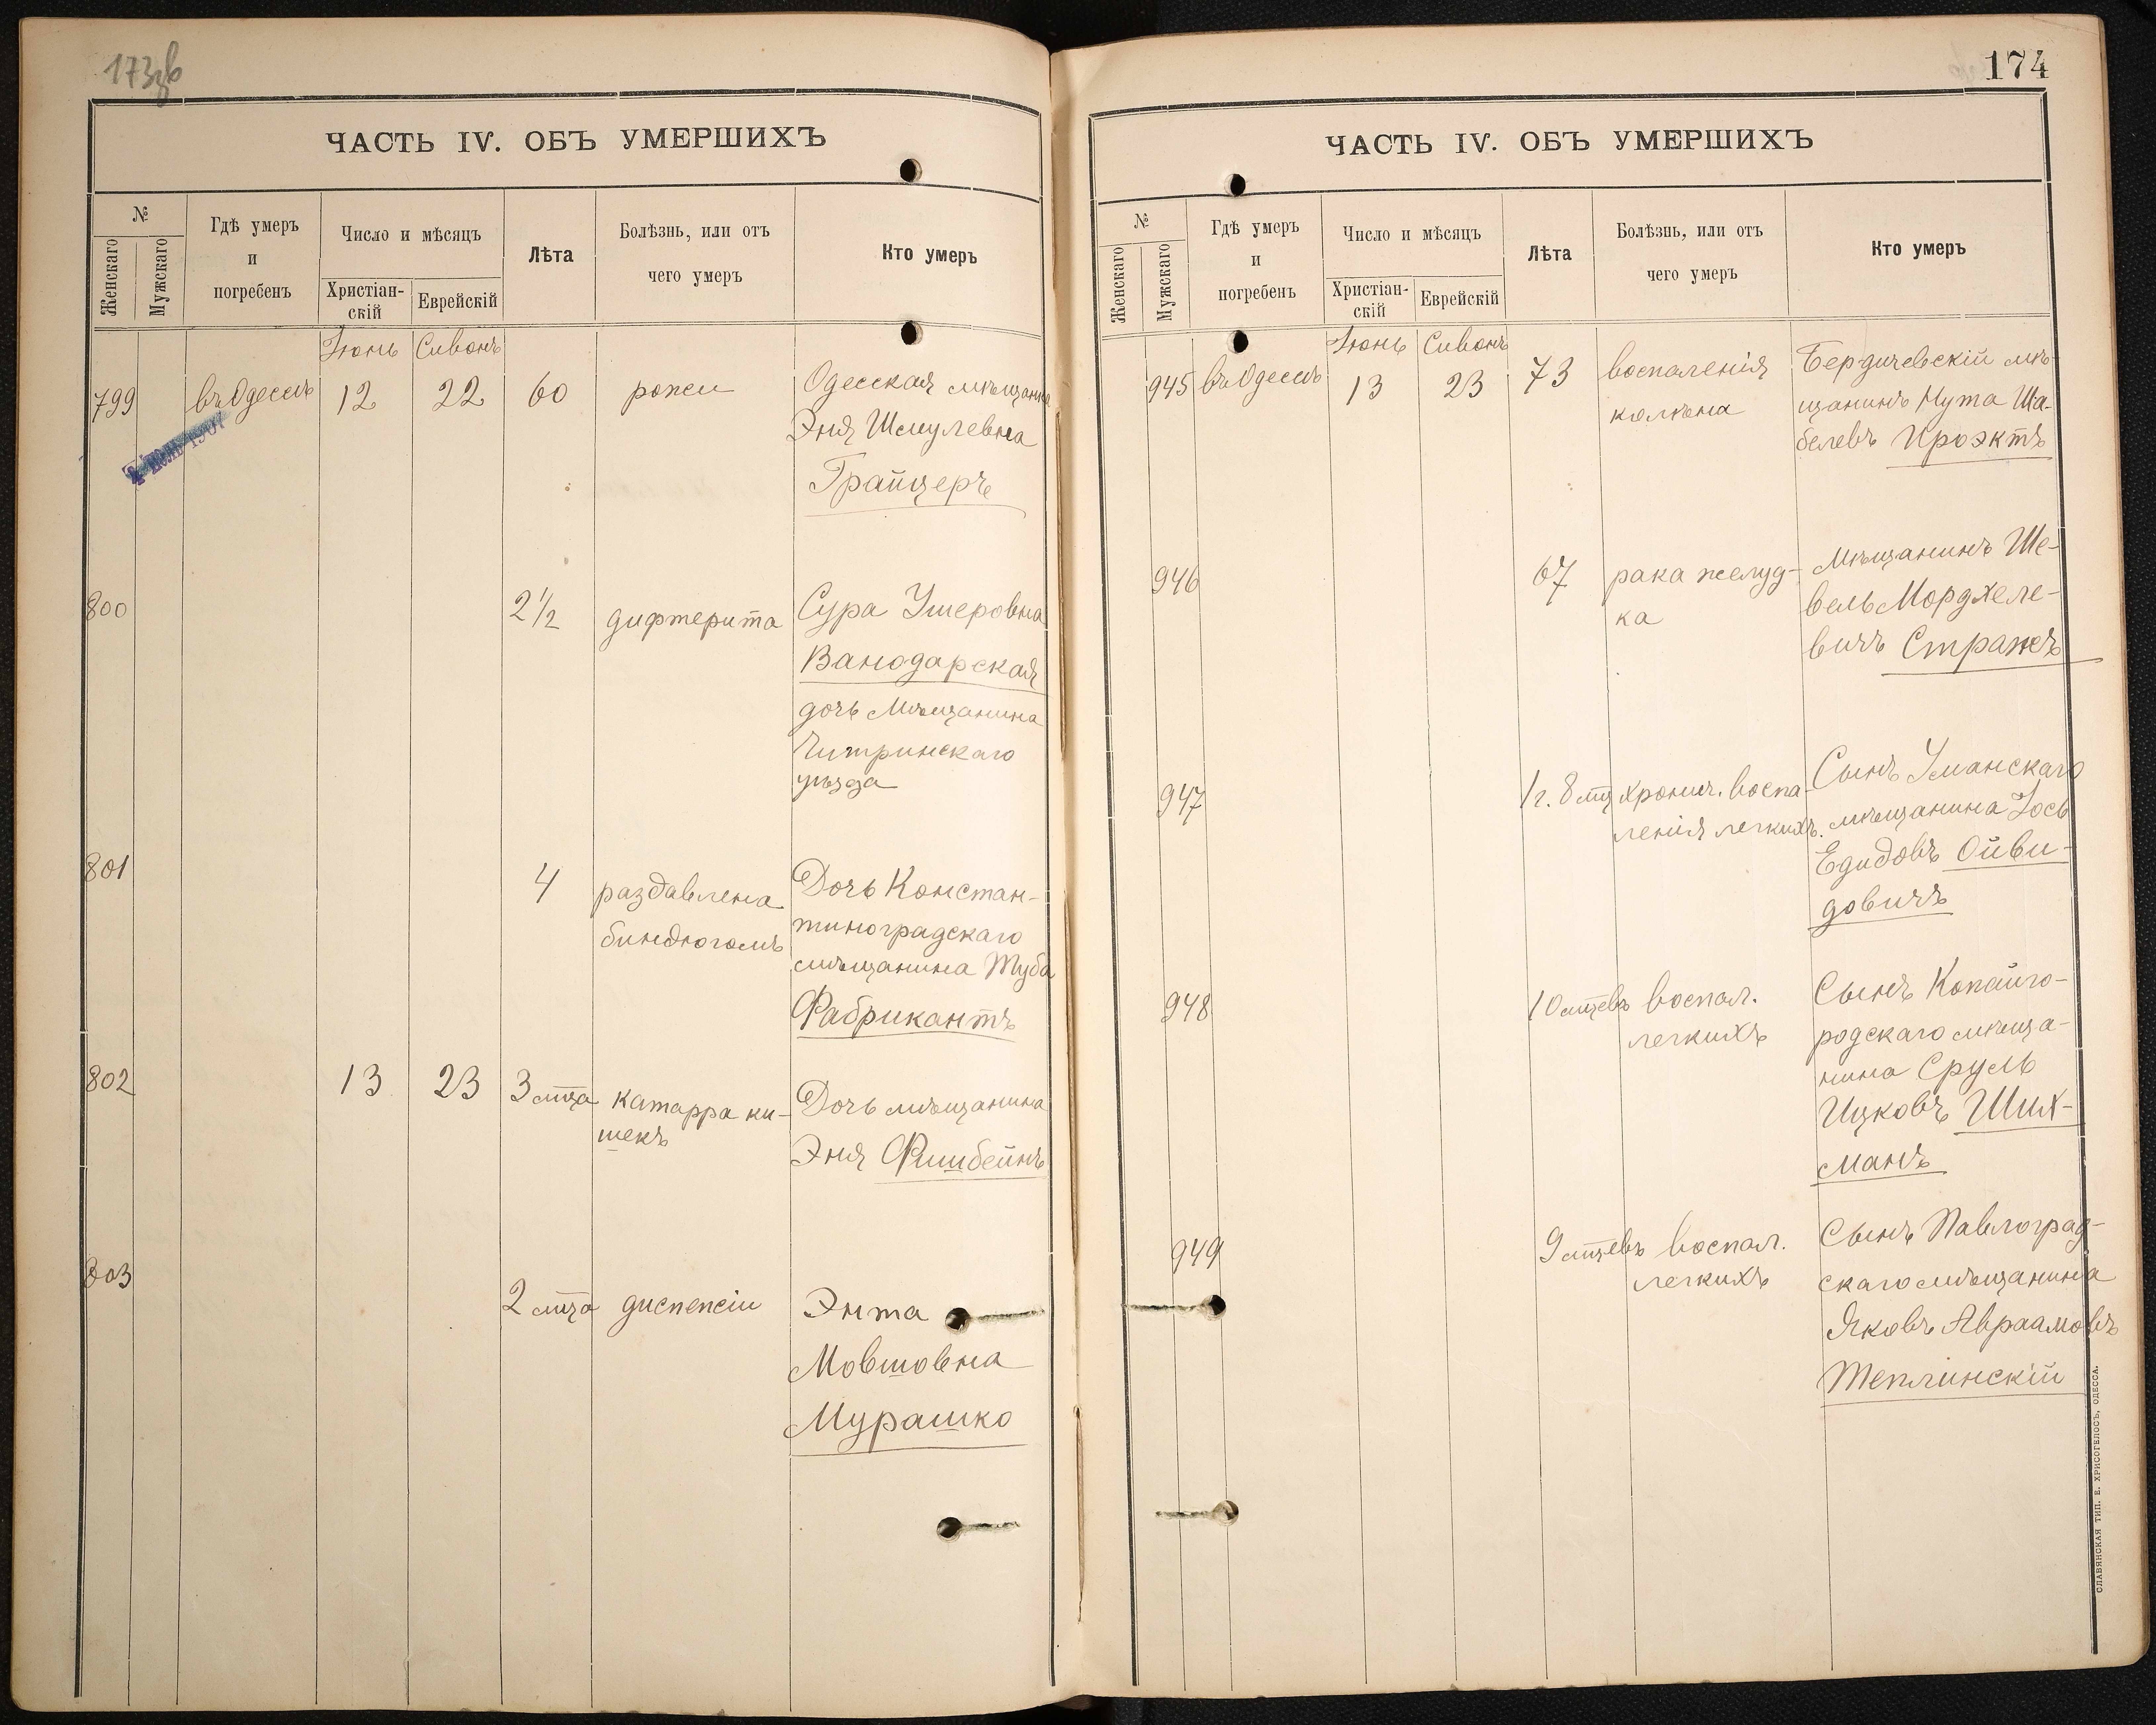 173зв
ЧАСТЬ IV. ОБЪ УМЕРШИХЪ
№
Женскаго
Мужскаго
Гдѣ умеръ
и
погребенъ
Число и мѣсяцъ
Христіан-
скій
Еврейскій
Лѣта
Болѣзнь, или отъ
чего умеръ
Кто умеръ
Іюнь Сивонъ
799 въ Одессѣ 12 22 60 рожи Одесская мѣщанка
Эня Шмулевна
Грайцеръ
800 2 1/2 дифтерита Сура Ушеровна
Ванодарская
дочь мѣщанина
Чигринскаго
уѣзда
801 4 раздавлена Дочь Констан-
биндюгомъ тиноградскаго
мѣщанина Туба
Фабрикантъ
802 13 23 3 мца катарра ки- Дочь мѣщанина
шекъ Эня Фишбейнъ
803 2 мца диспепсіи Энта
Мовшовна
Мурашко
174
ЧАСТЬ IV. ОБЪ УМЕРШИХЪ
№
Женскаго
Мужскаго
Гдѣ умеръ
и
погребенъ
Число и мѣсяцъ
Христіан-
скій
Еврейскій
Лѣта
Болѣзнь, или отъ
чего умеръ
Кто умеръ
Іюнь Сивонъ
945 въ Одессѣ 13 23 73 воспаленія Бердичевскій мѣ-
колѣна щанинъ Нута Ша-
белевъ Проэктъ
946 67 рака желуд- Мѣщанинъ Ше-
ка вель Мордхеле-
вичъ Стражъ
947 1 г. 8 мц хронич. воспа- Сынъ Уманскаго
ленія легкихъ. мѣщанина Іось
Едидовъ Ойви-
довичъ
948 10 мцевъ воспал. Сынъ Копайго-
легкихъ родскаго мѣща-
нина Сруль
Ицковъ Ших-
манъ
949 9 мцевъ воспал. Сынъ Павлоград-
легкихъ скаго мѣщанина
Яковъ Авраамовъ
Теплинскій
СЛАВЯНСКАЯ ТИП. Е. ХРИСОГЕЛОСЪ, ОДЕССА.